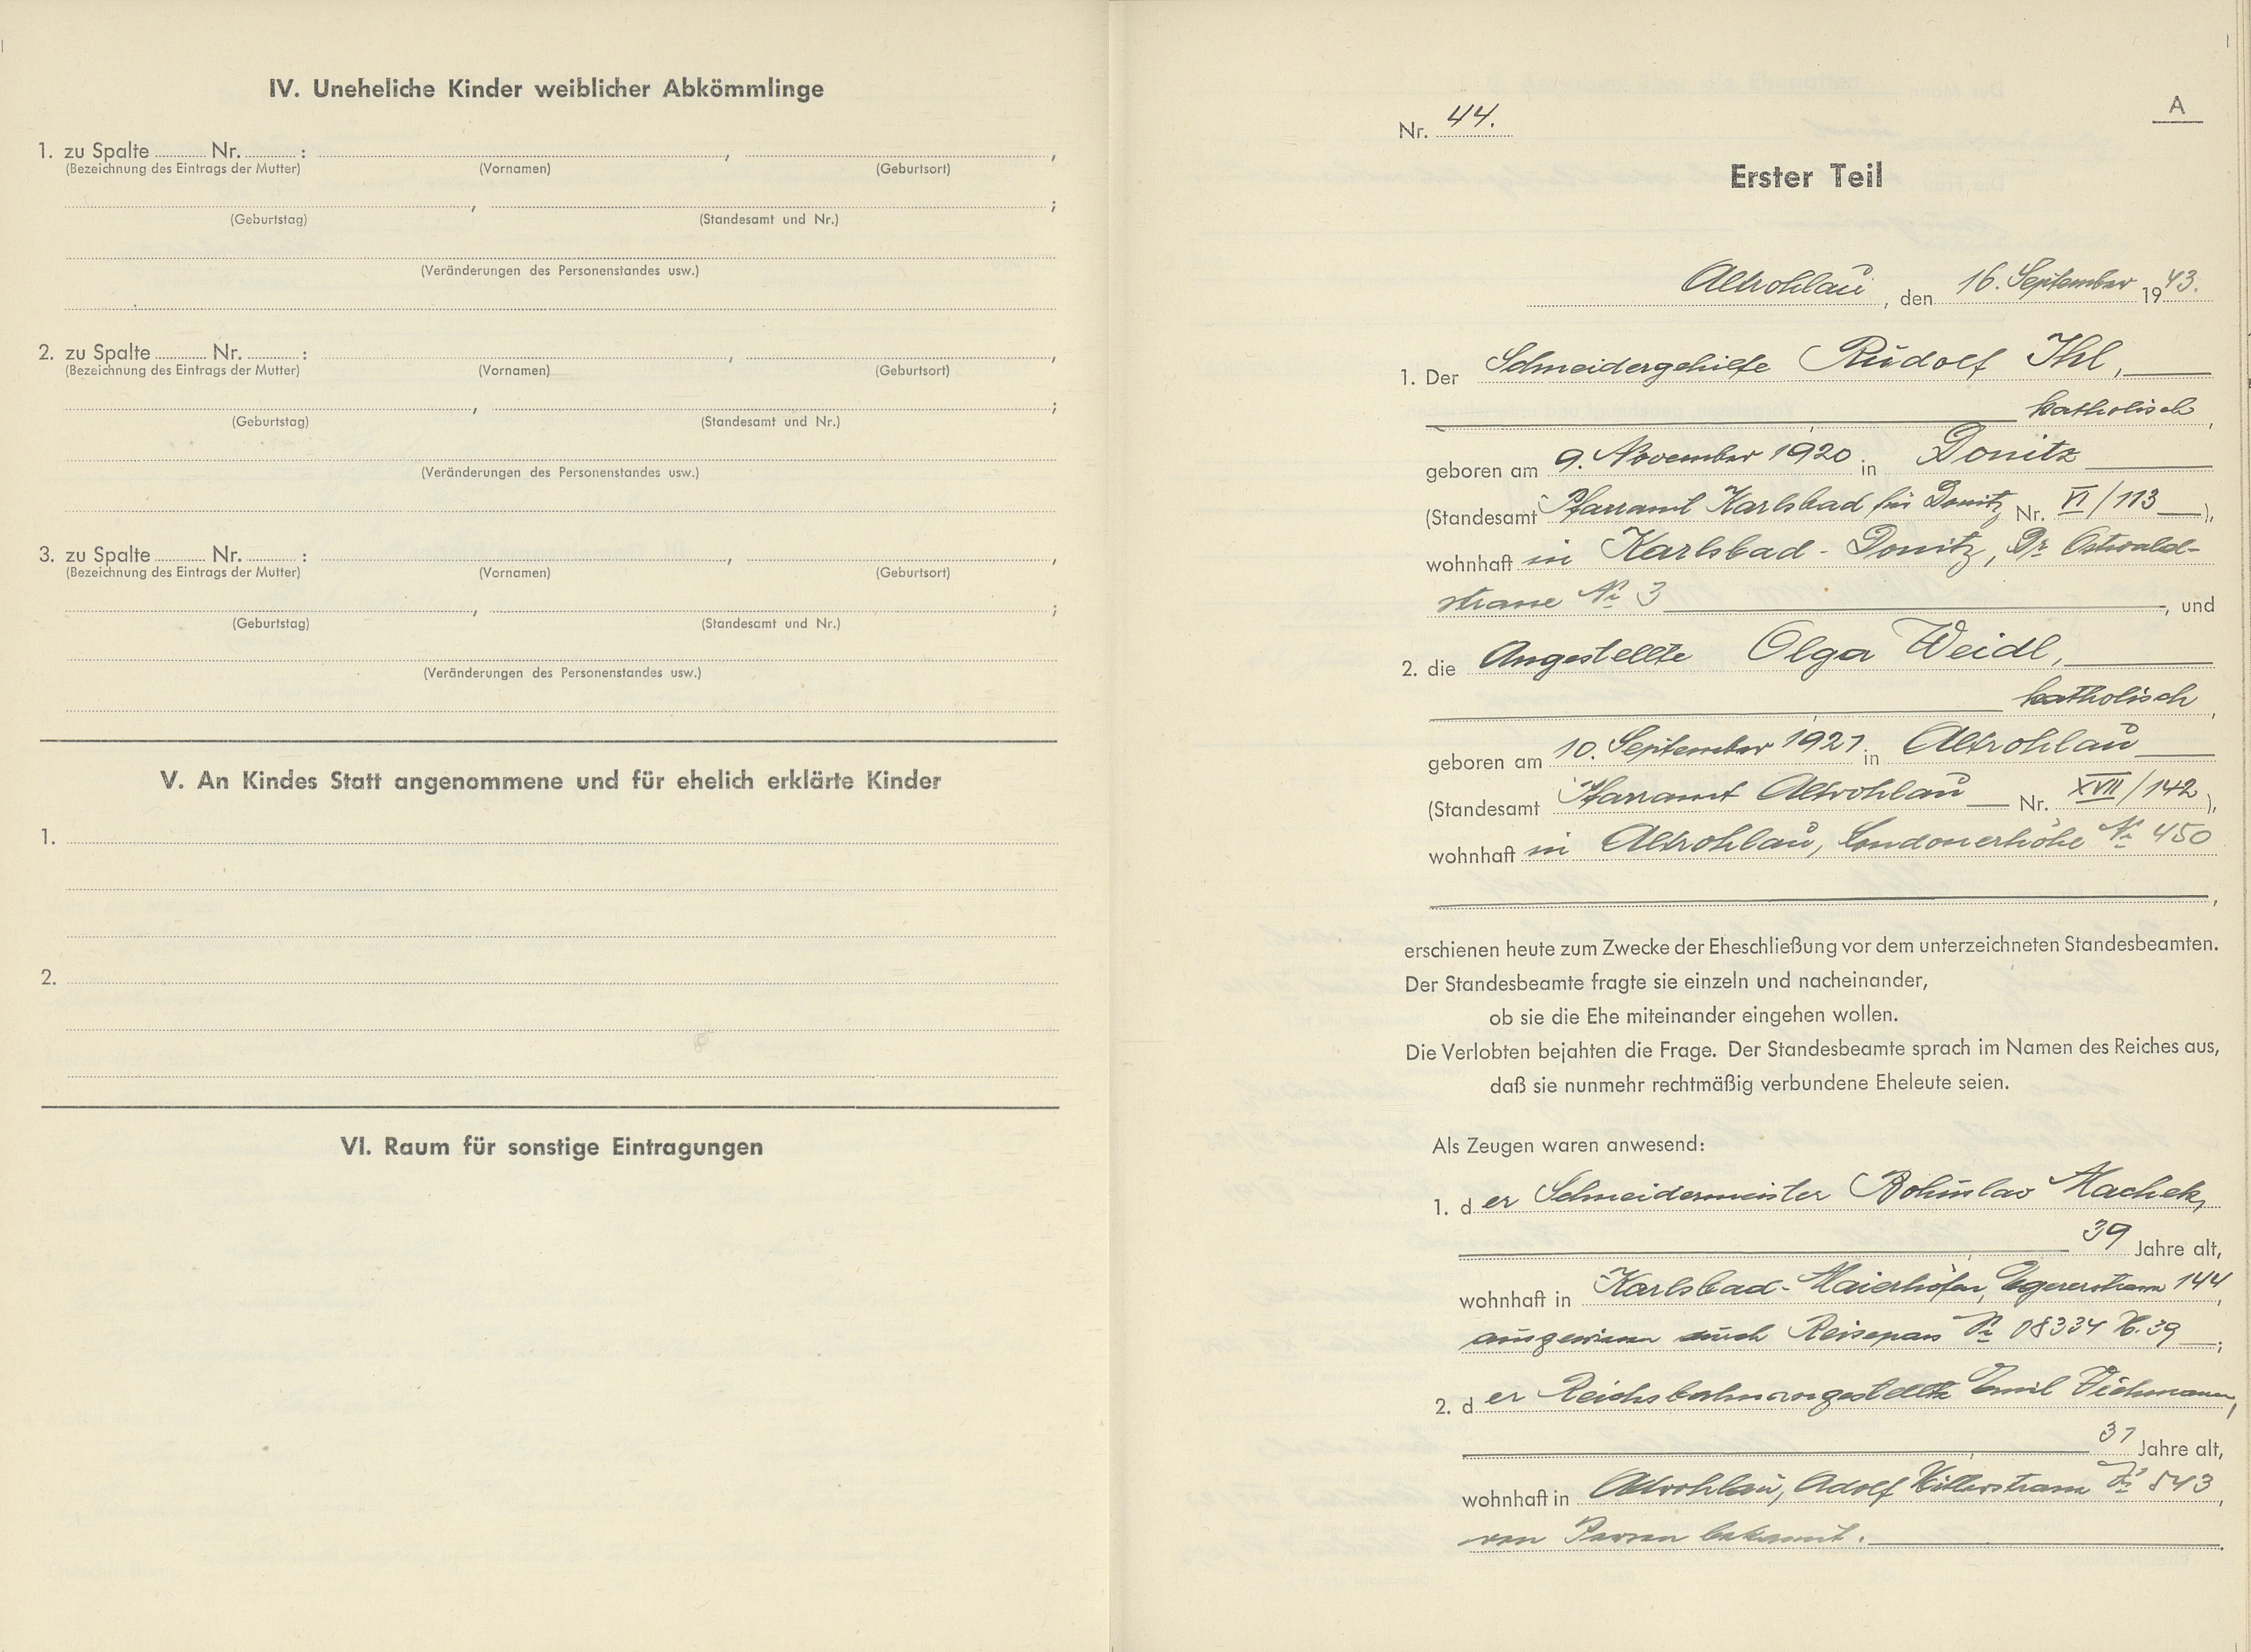 IV. Uneheliche Kinder weiblicher Abkömmlinge
1. zu Spalte ........ Nr. ........ : , ,
(Bezeichnung des Eintrags der Mutter) (Vornamen) (Geburtsort)
, ;
(Geburtstag) (Standesamt und Nr.)
(Veränderungen des Personenstandes usw.)
2. zu Spalte ........ Nr. ........ : , ,
(Bezeichnung des Eintrags der Mutter) (Vornamen) (Geburtsort)
, ;
(Geburtstag) (Standesamt und Nr.)
(Veränderungen des Personenstandes usw.)
3. zu Spalte ........ Nr. ........ : , ,
(Bezeichnung des Eintrags der Mutter) (Vornamen) (Geburtsort)
, ;
(Geburtstag) (Standesamt und Nr.)
(Veränderungen des Personenstandes usw.)
V. An Kindes Statt angenommene und für ehelich erklärte Kinder
1.
2.
VI. Raum für sonstige Eintragungen
A
Nr. 44.
Erster Teil
Altrohlau, den 16. September 1943.
1. Der Schneidergehilfe Rudolf Ihl,
katholisch,
geboren am 9. November 1920 in Donitz
(Standesamt Pfarramt Karlsbad für Donitz Nr. VI/113),
wohnhaft in Karlsbad-Donitz, Dr. Ostwald-
strasse Nr. 3, und
2. die Angestellte Olga Weidl,
katholisch,
geboren am 10. September 1921 in Altrohlau
(Standesamt Pfarramt Altrohlau Nr. XVII/142),
wohnhaft in Altrohlau, Londonerhöhe Nr. 450
,
erschienen heute zum Zwecke der Eheschließung vor dem unterzeichneten Standesbeamten.
Der Standesbeamte fragte sie einzeln und nacheinander,
ob sie die Ehe miteinander eingehen wollen.
Die Verlobten bejahten die Frage. Der Standesbeamte sprach im Namen des Reiches aus,
daß sie nunmehr rechtmäßig verbundene Eheleute seien.
Als Zeugen waren anwesend:
1. der Schneidermeister Bohuslav Machek,
39 Jahre alt,
wohnhaft in Karlsbad-Maierhöfen, Egererstrasse 144,
ausgewiesen durch Reisepass Nr. 08334 39;
2. der Reichsbahnangestellte Emil Fichmann,
31 Jahre alt,
wohnhaft in Altrohlau, Adolf Hitlerstrasse Nr. 543,
von Person bekannt.